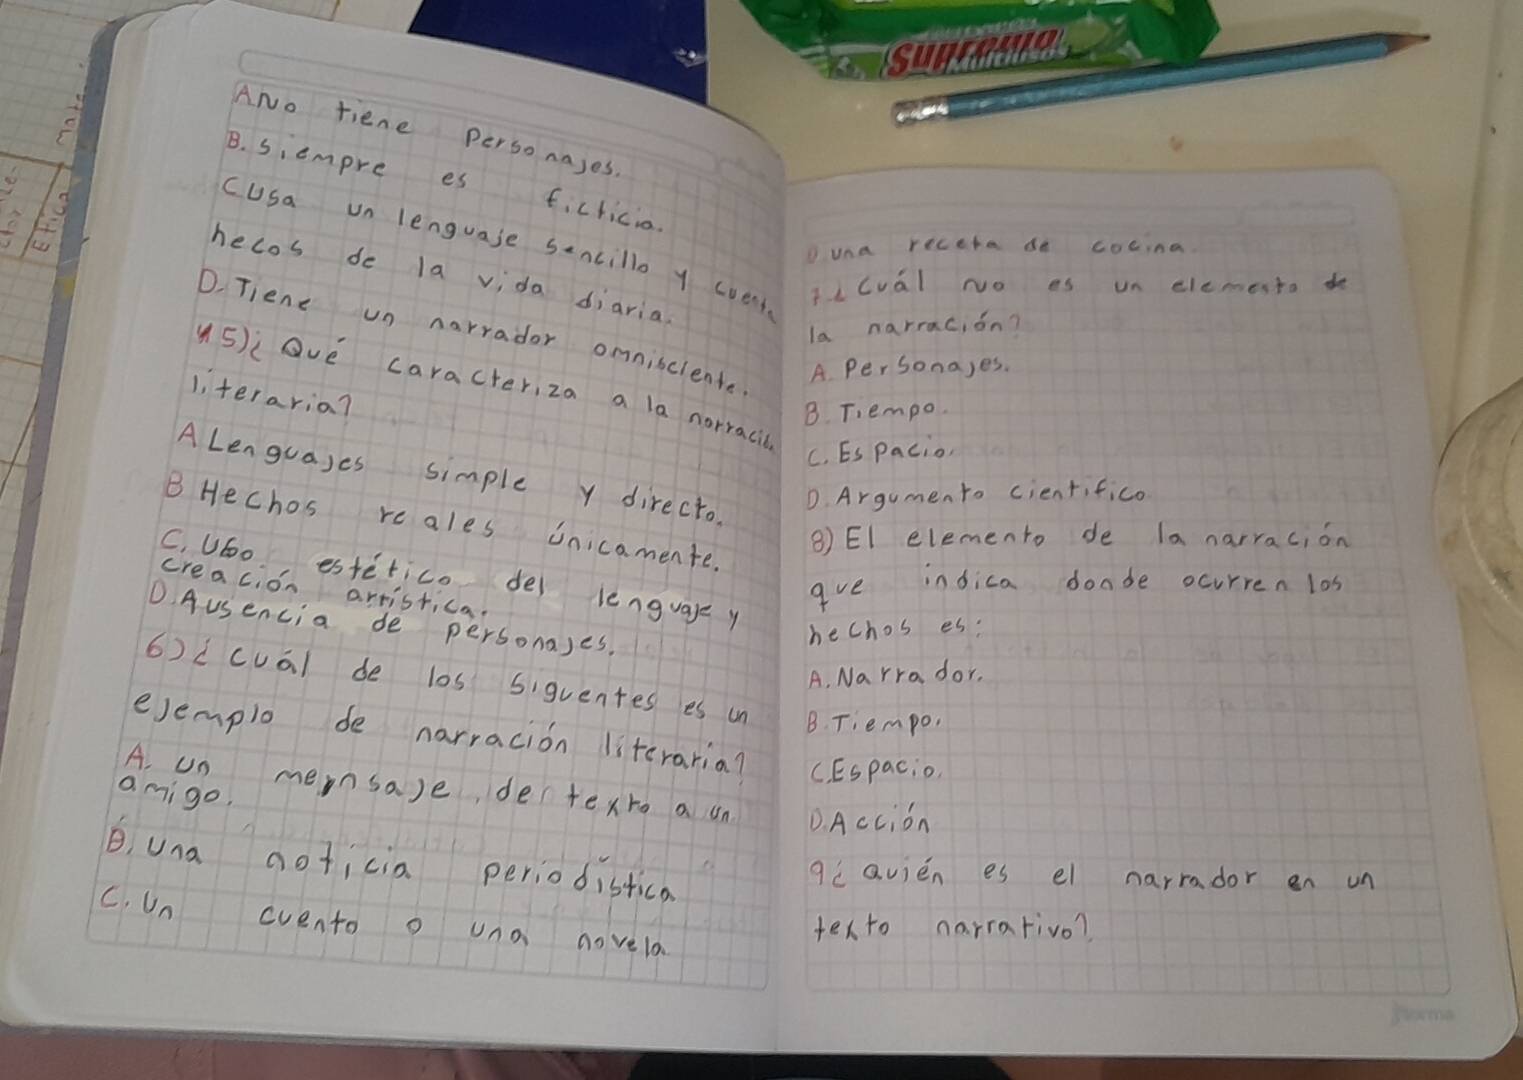 A No tiene personajes.
B. siempre es ficticia.
C usa un lenguaje sencillo y cuenta
hecos de la vida diaria.
D. Tiene un narrador omnisciente.
5)¿ Qué caracteriza a la norración
literaria?
A Lenguajes simple y directo.
B Hechos reales únicamente.
C. Uso estético del lenguaje y
creación arristica.
D. Ausencia de personajes.
6)¿ cuál de los siguentes es un
ejemplo de narración literaria?
A. un mernsaje, der texto a un
amigo.
B. una noticia periodistica
C. Un cuento o una novela
D una receta de cocina.
7¿ Cuál No es un elemento de
la narración?
A. Personajes.
B. Tiempo.
C. Espacio.
D. Argumento cientifico
8) El elemento de la narración
que indica donde ocurren los
hechos es:
A. Narrador.
B. Tiempo.
C. Espacio.
D. Acción
9¿ Quién es el narrador en un
texto narrativo?
Supremo
Multiusos
Etica
mate
Norma